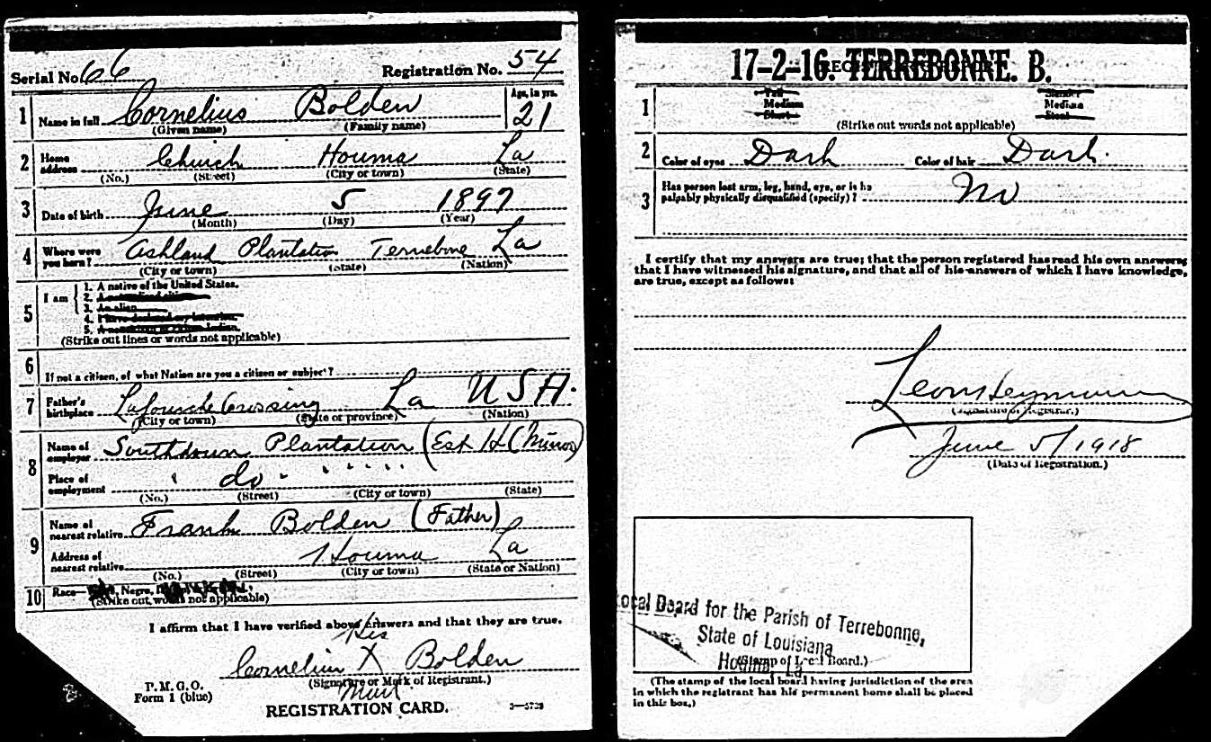 Serial No. 66 Registration No. 54
1 Name in full Cornelius Bolden 21
(Given name) (Family name) Age, in yrs.
2 Home address Church Houma La
(No.) (Street) (City or town) (State)
3 Date of birth June 5 1897
(Month) (Day) (Year)
4 Where were you born? Ashland Plantation Terrebone La
(City or town) (State) (Nation)
5 I am 1. A native of the United States.
2. A naturalized citizen.
3. An alien.
4. I have declared my intention.
5. A noncitizen or citizen Indian.
(Strike out lines or words not applicable)
6 If not a citizen, of what Nation are you a citizen or subject?
7 Father's birthplace Lafourche Crossing La USA.
(City or town) (State or province) (Nation)
8 Name of employer Southdown Plantation (Est H C Minor)
Place of employment " do "
(No.) (Street) (City or town) (State)
9 Name of nearest relative Frank Bolden (Father)
Address of nearest relative Houma La
(No.) (Street) (City or town) (State or Nation)
10 Race— Negro,
(Strike out words not applicable)
I affirm that I have verified above answers and that they are true.
His
Cornelius X Bolden
(Signature or Mark of Registrant.)
P. M. G. O.
Form 1 (blue)
REGISTRATION CARD. 3—5728
17-2-16. TERREBONNE. B.
1 Tall Slender
Medium Medium
Short Stout
(Strike out words not applicable)
2 Color of eyes Dark Color of hair Dark.
3 Has person lost arm, leg, hand, eye, or is he palpably physically disqualified (specify)? No
I certify that my answers are true; that the person registered has read his own answers;
that I have witnessed his signature, and that all of his answers of which I have knowledge,
are true, except as follows:
(Signature of Registrar.)
June 5/1918
(Date of Registration.)
Local Board for the Parish of Terrebonne,
State of Louisiana
Houma, La.
(Stamp of Local Board.)
(The stamp of the local board having jurisdiction of the area
in which the registrant has his permanent home shall be placed
in this box.)